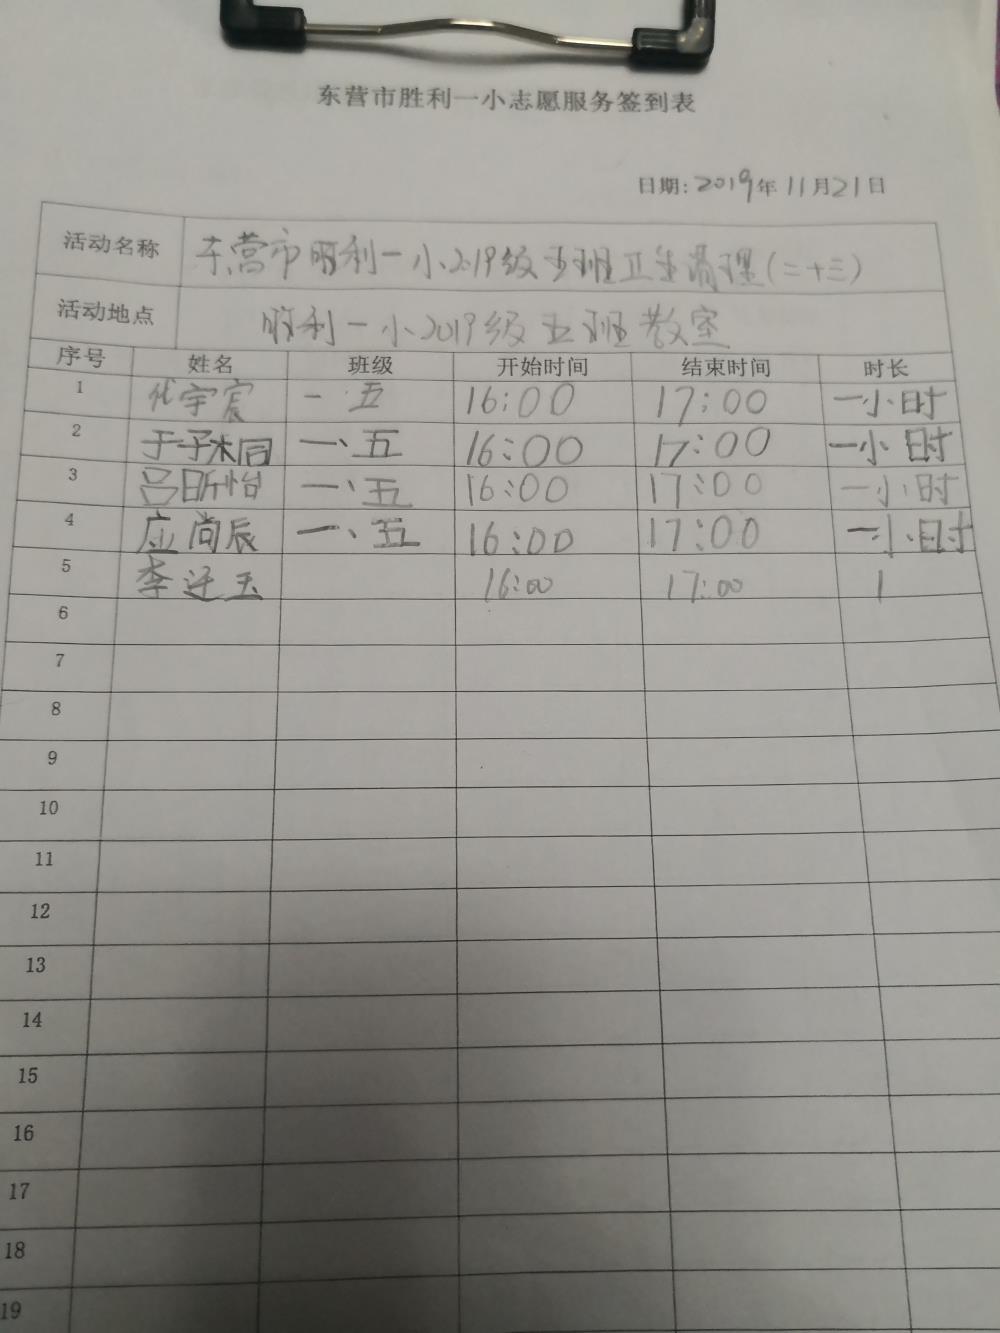 东营市胜利一小志愿服务签到表
日期: 2019年11月21日
活动名称 东营市胜利一小2019级五班卫生清理(二十三)
活动地点 胜利一小2019级五班教室
序号 姓名 班级 开始时间 结束时间 时长
1 代宇宸 一 五 16:00 17:00 一小时
2 于子桐 一、五 16:00 17:00 一小时
3 吕昕怡 一、五 16:00 17:00 一小时
4 应尚辰 一、五 16:00 17:00 一小时
5 李迁玉 16:00 17:00 1
6
7
8
9
10
11
12
13
14
15
16
17
18
19